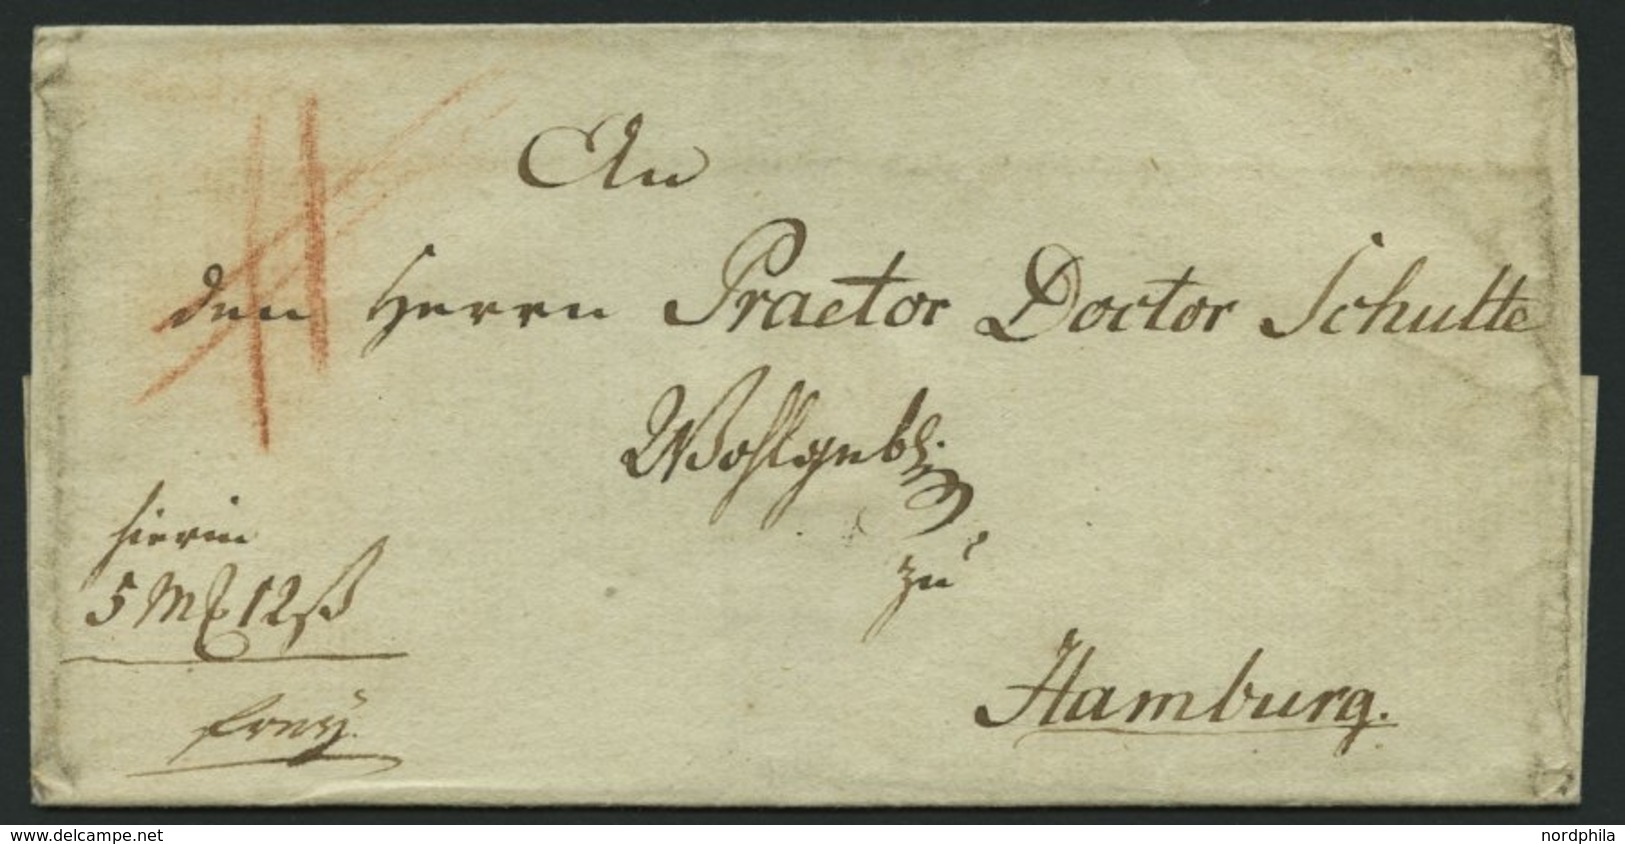 An
den Herrn Praetor Doctor Schulte
Wohlgeb:
zu
Hamburg.
hierin
5 M 12 ß
www.delcampe.net
nordphila